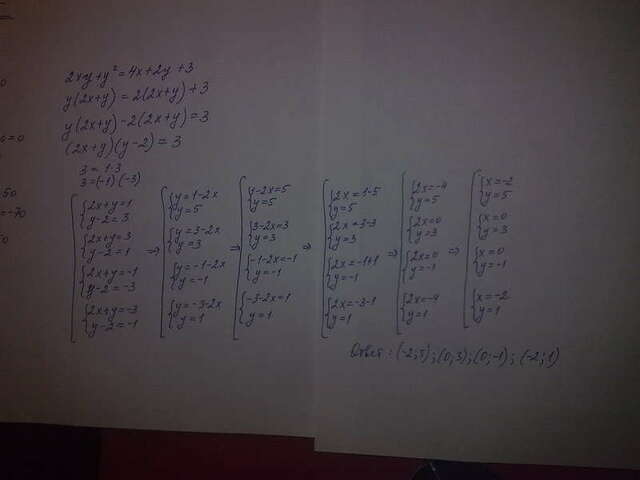 2xy+y²=4x+2y+3
y(2x+y)=2(2x+y)+3
y(2x+y)-2(2x+y)=3
(2x+y)(y-2)=3
3=1·3
3=(-1)(-3)
2x+y=1
y-2=3
2x+y=3
y-2=1
2x+y=-1
y-2=-3
2x+y=-3
y-2=-1
⇒
y=1-2x
y=5
y=3-2x
y=3
y=-1-2x
y=-1
y=-3-2x
y=1
⇒
y-2x=5
y=5
3-2x=3
y=3
-1-2x=-1
y=-1
-3-2x=1
y=1
⇒
2x=1-5
y=5
2x=3-3
y=3
2x=-1+1
y=-1
2x=-3-1
y=1
⇒
2x=-4
y=5
2x=0
y=3
2x=0
y=-1
2x=-4
y=1
⇒
x=-2
y=5
x=0
y=3
x=0
y=-1
x=-2
y=1
Ответ: (-2;5);(0;3);(0;-1);(-2;1)